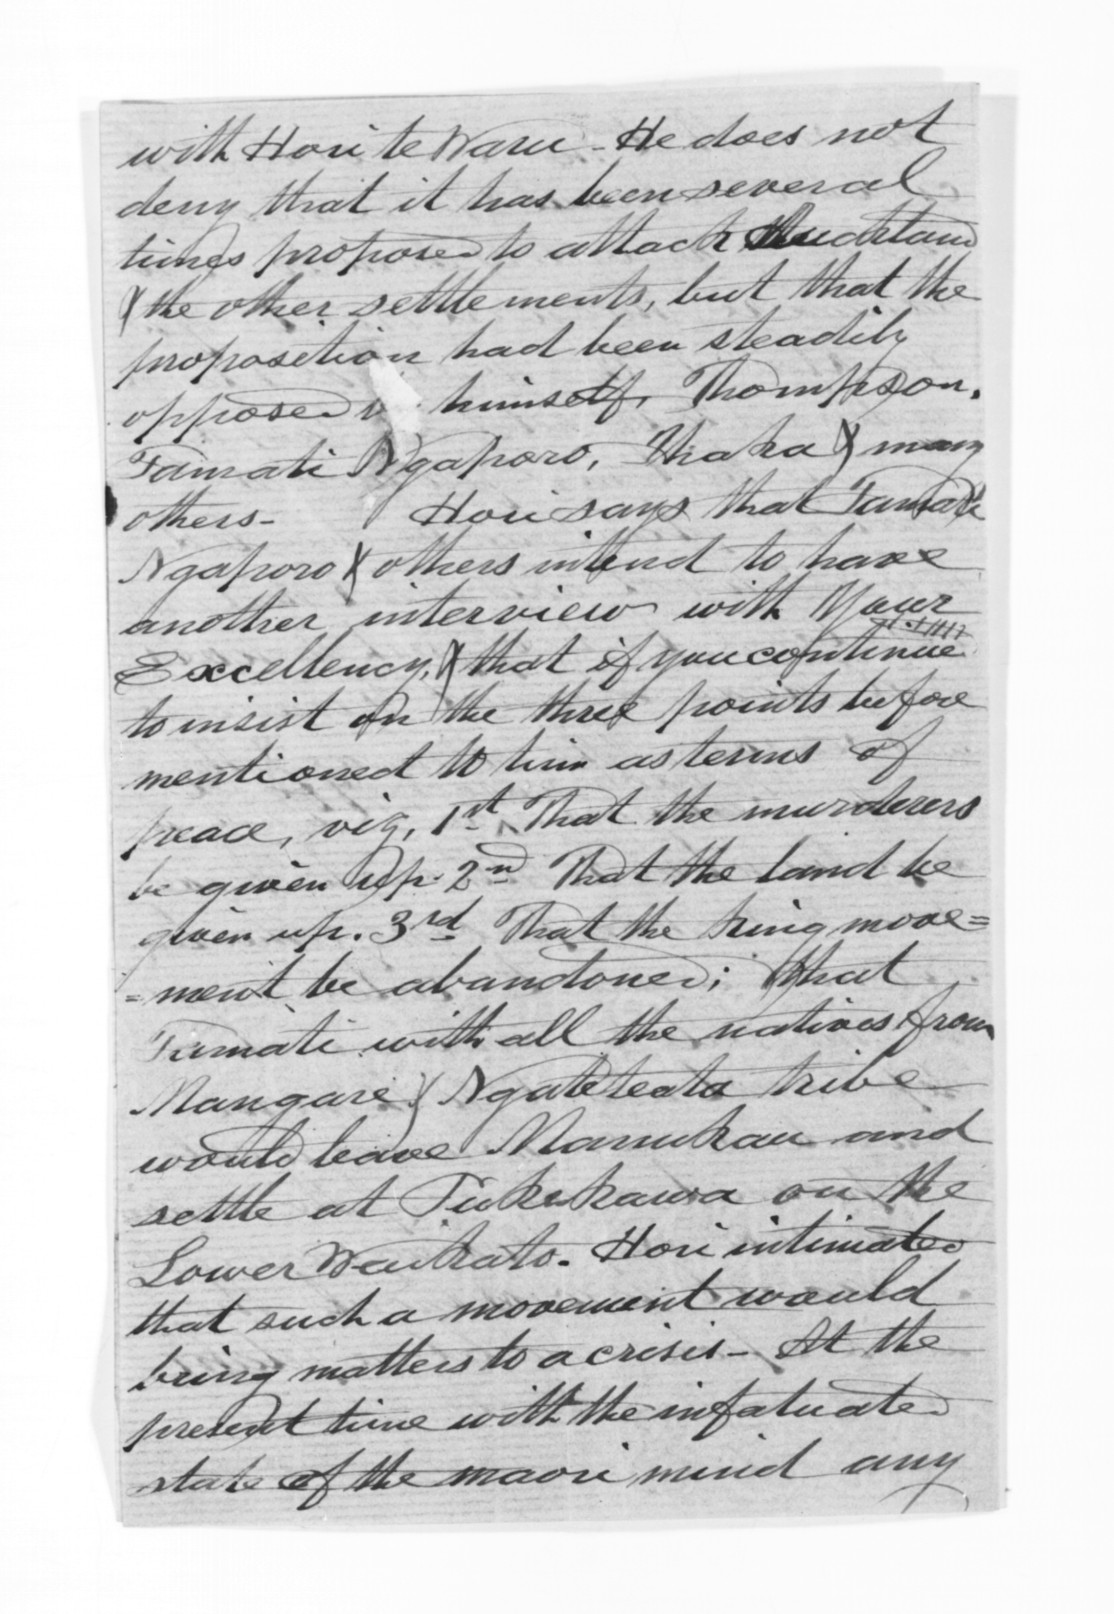 with Hori te Waru - He does not
deny that it has been several
times proposed to attack Auckland
& the other settlements, but that the
proposition had been steadily
opposed by himself, Thompson.
Tamati Ngaporo, Ihaka & many
others - Hori says that Tamati
Ngaporo & others intend to have
another interview with Your
Excellency, & that if you continue
to insist on the three points before
mentioned to him as terms of
peace, viz, 1st That the murderers
be given up. 2nd That the land be
given up. 3rd That the king move=
=ment be abandoned; that
Tamati with all the natives from
Mangare & Ngateteata tribe
would leave Manukau and
settle at Tukekawa on the
Lower Waikato. Hori intimated
that such a movement would
bring matters to a crisis - At the
present time with the infatuated
state of the maori mind any